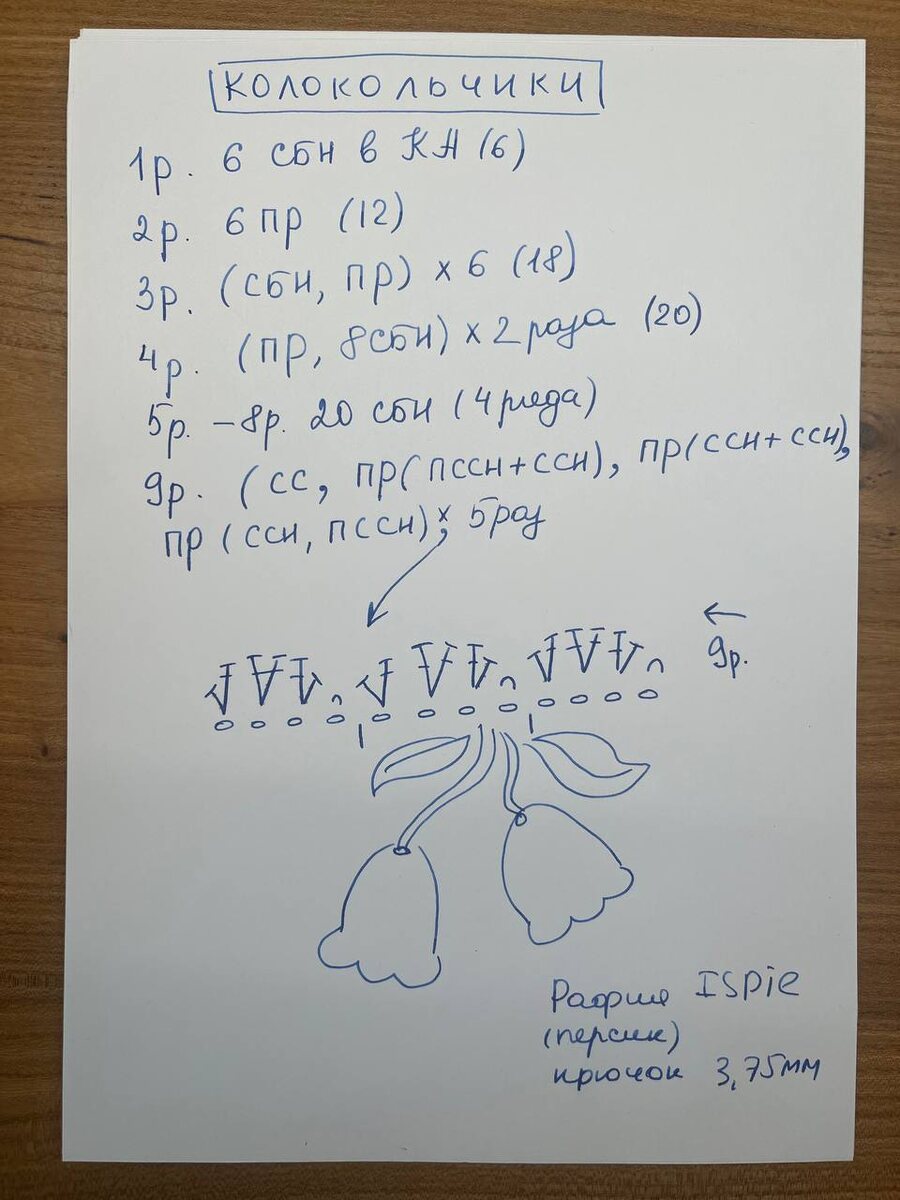 КОЛОКОЛЬЧИКИ
1р. 6 сбн в КА (6)
2р. 6 пр (12)
3р. (сбн, пр) х 6 (18)
4р. (пр, 8сбн) х 2 раза (20)
5р. – 8р. 20 сбн (4 ряда)
9р. (сс, пр(пссн+ссн), пр(ссн+ссн),
пр (ссн, пссн) х 5 раз
9р.
Рафия ISPIE
(персик)
крючок 3,75мм